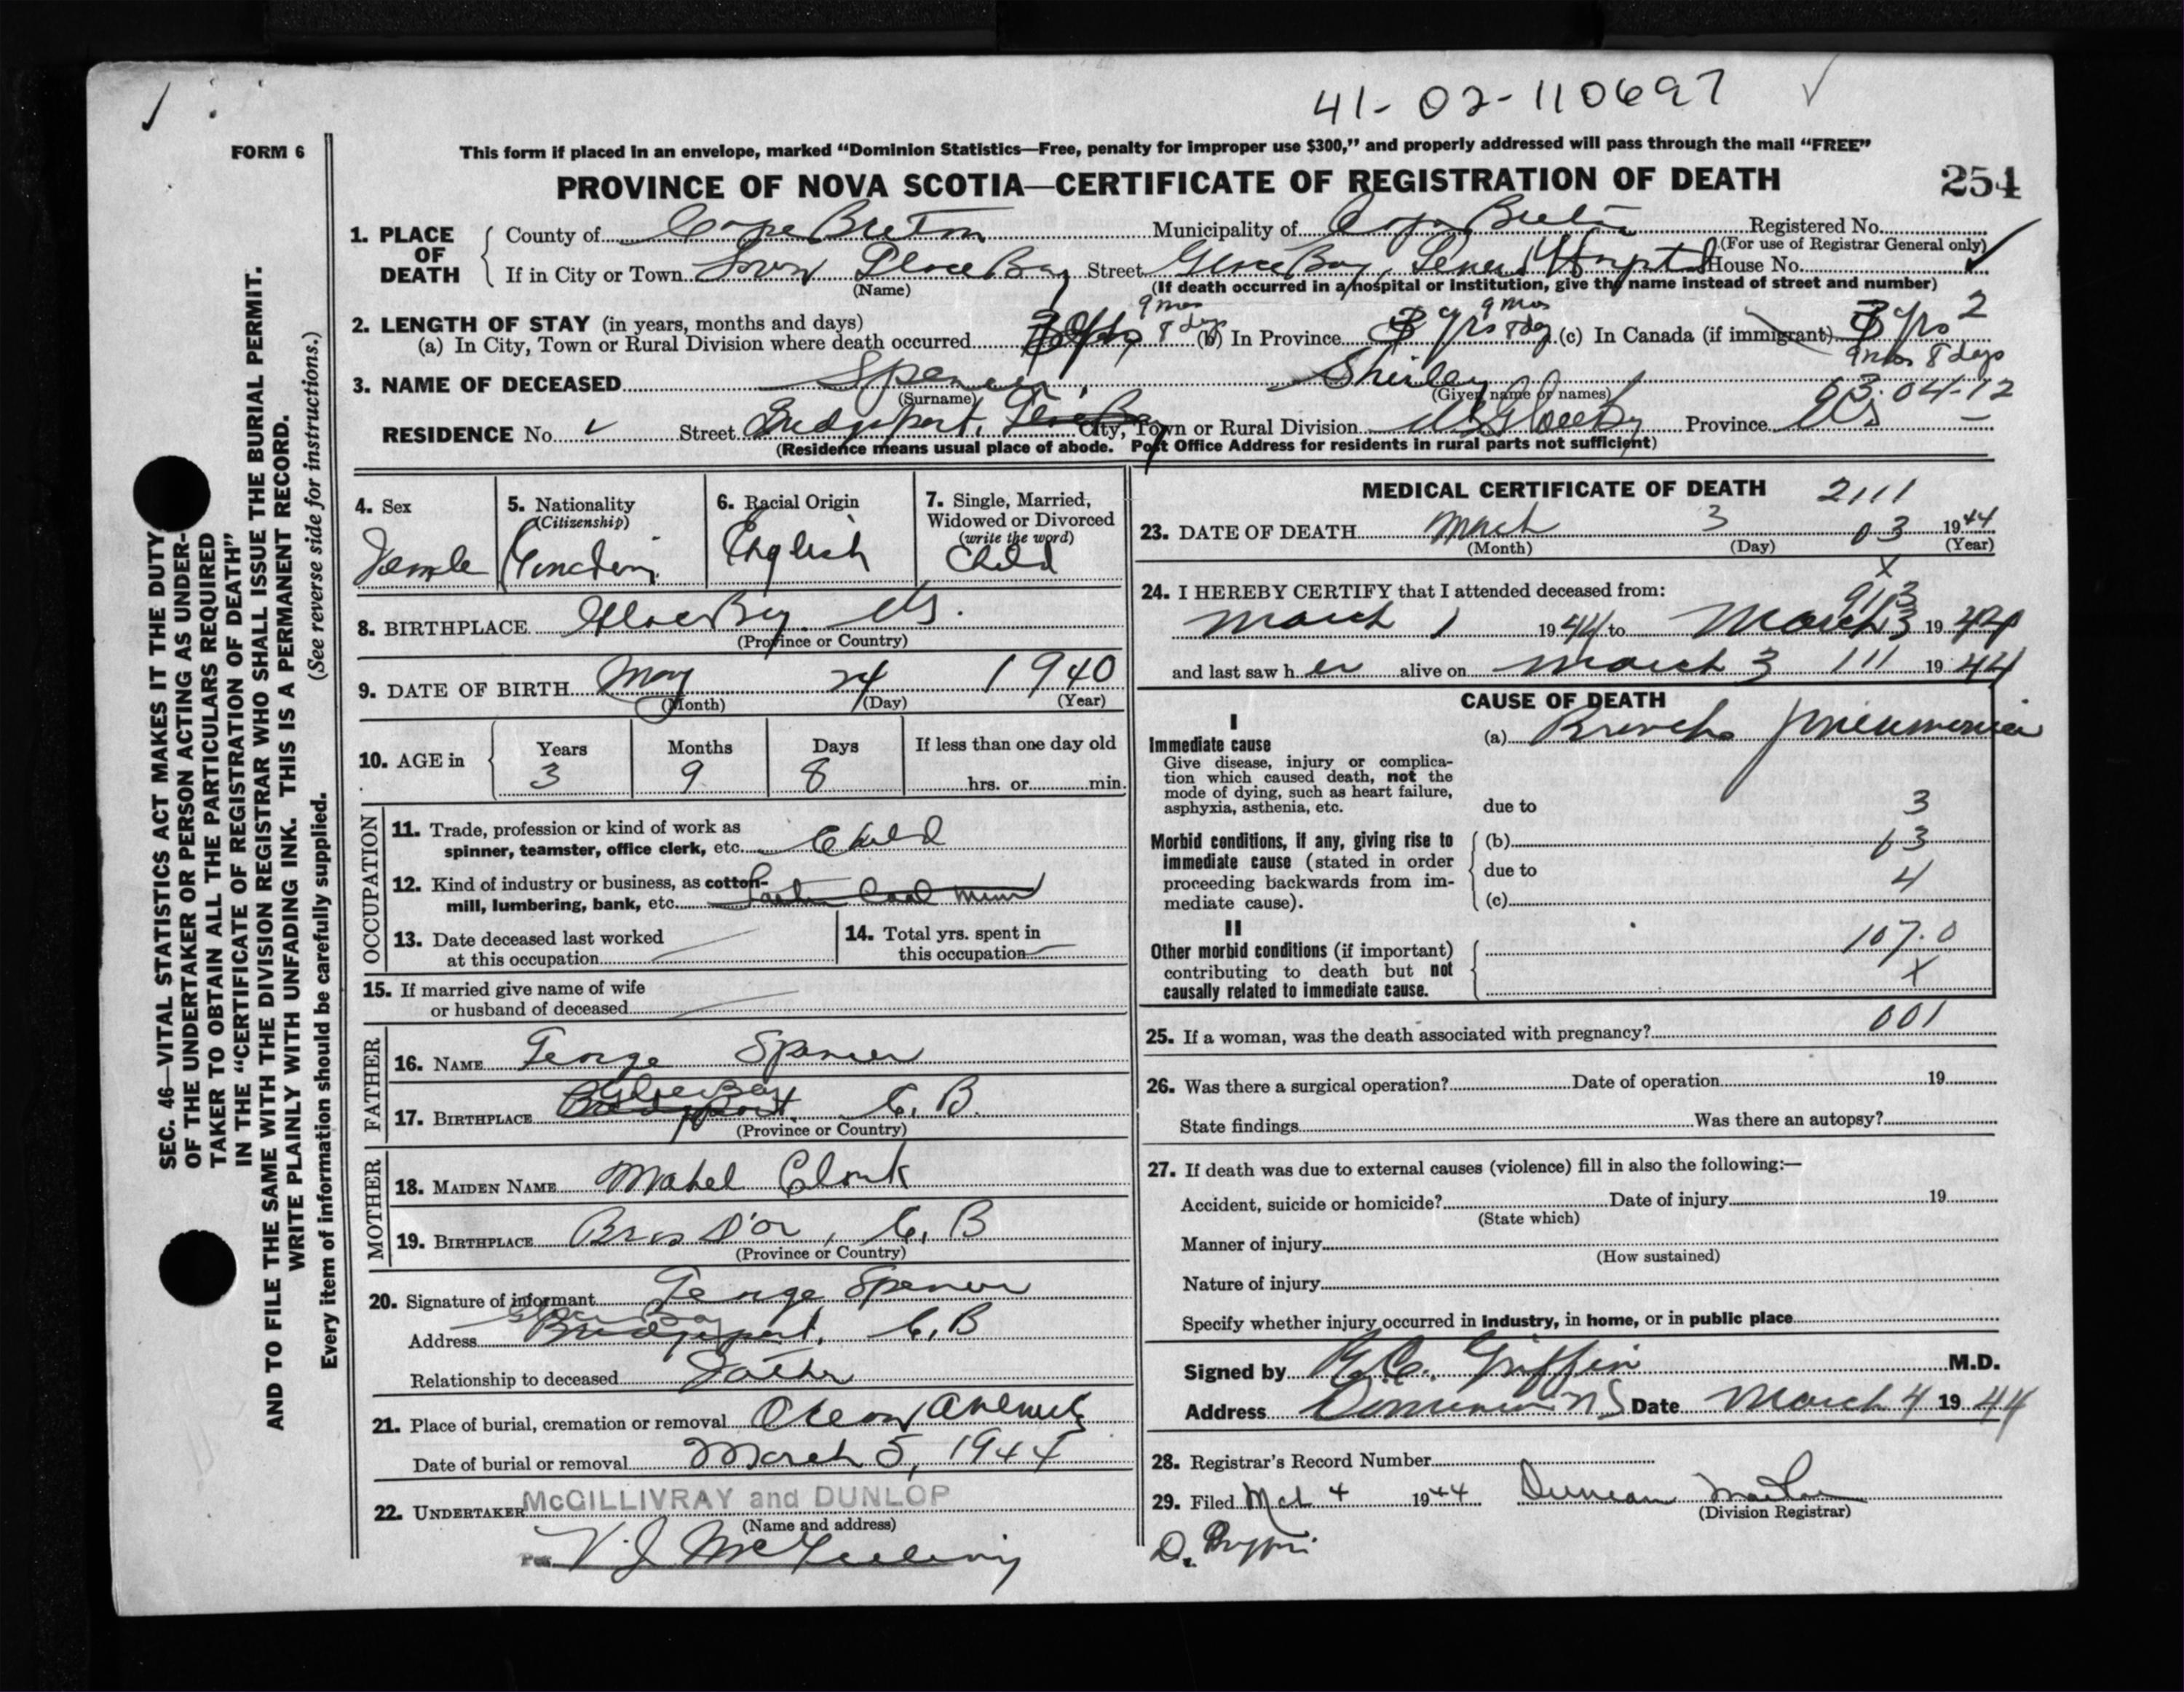 41-02-110697
FORM 6
This form if placed in an envelope, marked "Dominion Statistics—Free, penalty for improper use $300," and properly addressed will pass through the mail "FREE"
PROVINCE OF NOVA SCOTIA—CERTIFICATE OF REGISTRATION OF DEATH
254
SEC. 46—VITAL STATISTICS ACT MAKES IT THE DUTY
OF THE UNDERTAKER OR PERSON ACTING AS UNDER-
TAKER TO OBTAIN ALL THE PARTICULARS REQUIRED
IN THE "CERTIFICATE OF REGISTRATION OF DEATH"
AND TO FILE THE SAME WITH THE DIVISION REGISTRAR WHO SHALL ISSUE THE BURIAL PERMIT.
WRITE PLAINLY WITH UNFADING INK. THIS IS A PERMANENT RECORD.
Every item of information should be carefully supplied. (See reverse side for instructions.)
1. PLACE OF DEATH
County of Cape Breton Municipality of Cape Breton Registered No.
(For use of Registrar General only)
If in City or Town Town Glace Bay Street Glace Bay, General Hospital House No.
(Name) (If death occurred in a hospital or institution, give the name instead of street and number)
2. LENGTH OF STAY (in years, months and days)
(a) In City, Town or Rural Division where death occurred 3 yrs 9 mos 8 days (b) In Province 3 yrs 9 mos 8 dy (c) In Canada (if immigrant) 3 yrs 9 mos 8 days 2
3. NAME OF DECEASED Spencer, Shirley
(Surname) (Given name or names)
03.04-12
RESIDENCE No. Street Bridgeport, Glace Bay City, Town or Rural Division Province NS
(Residence means usual place of abode. Post Office Address for residents in rural parts not sufficient)
4. Sex
Female
5. Nationality
(Citizenship)
Canadian
6. Racial Origin
English
7. Single, Married,
Widowed or Divorced
(write the word)
Child
8. BIRTHPLACE Glace Bay NS.
(Province or Country)
9. DATE OF BIRTH May 24 1940
(Month) (Day) (Year)
10. AGE in
Years Months Days If less than one day old
3 9 8 hrs. or min.
OCCUPATION
11. Trade, profession or kind of work as
spinner, teamster, office clerk, etc. Child
12. Kind of industry or business, as cotton-
mill, lumbering, bank, etc. Coal
13. Date deceased last worked
at this occupation
14. Total yrs. spent in
this occupation
15. If married give name of wife
or husband of deceased
FATHER
16. NAME George Spencer
17. BIRTHPLACE Glace Bay Bridgeport, C. B.
(Province or Country)
MOTHER
18. MAIDEN NAME Mabel Clark
19. BIRTHPLACE Bras D'or, C. B
(Province or Country)
20. Signature of informant George Spencer
Glace Bay
Address Bridgeport, C. B
Relationship to deceased Father
21. Place of burial, cremation or removal Ocean Avenue
Date of burial or removal March 5, 1944
22. UNDERTAKER McGILLIVRAY and DUNLOP
(Name and address)
Per V. J. McGillivray
MEDICAL CERTIFICATE OF DEATH 2111
23. DATE OF DEATH March 3 03 1944
(Month) (Day) (Year)
x
24. I HEREBY CERTIFY that I attended deceased from:
March 1 1944 to March 3 1944
and last saw her alive on March 3 111 1944
CAUSE OF DEATH
I
Immediate cause
Give disease, injury or complica-
tion which caused death, not the
mode of dying, such as heart failure,
asphyxia, asthenia, etc.
(a) Broncho pneumonia
due to 3
Morbid conditions, if any, giving rise to
immediate cause (stated in order
proceeding backwards from im-
mediate cause).
(b) 63
due to 4
(c)
II
Other morbid conditions (if important)
contributing to death but not
causally related to immediate cause.
107.0
x
25. If a woman, was the death associated with pregnancy? 001
26. Was there a surgical operation? Date of operation 19
State findings Was there an autopsy?
27. If death was due to external causes (violence) fill in also the following:—
Accident, suicide or homicide? Date of injury 19
(State which)
Manner of injury
(How sustained)
Nature of injury
Specify whether injury occurred in industry, in home, or in public place
Signed by Griffin M.D.
Address Dominion NS Date March 4 1944
28. Registrar's Record Number
29. Filed Mch 4 1944 Duncan
(Division Registrar)